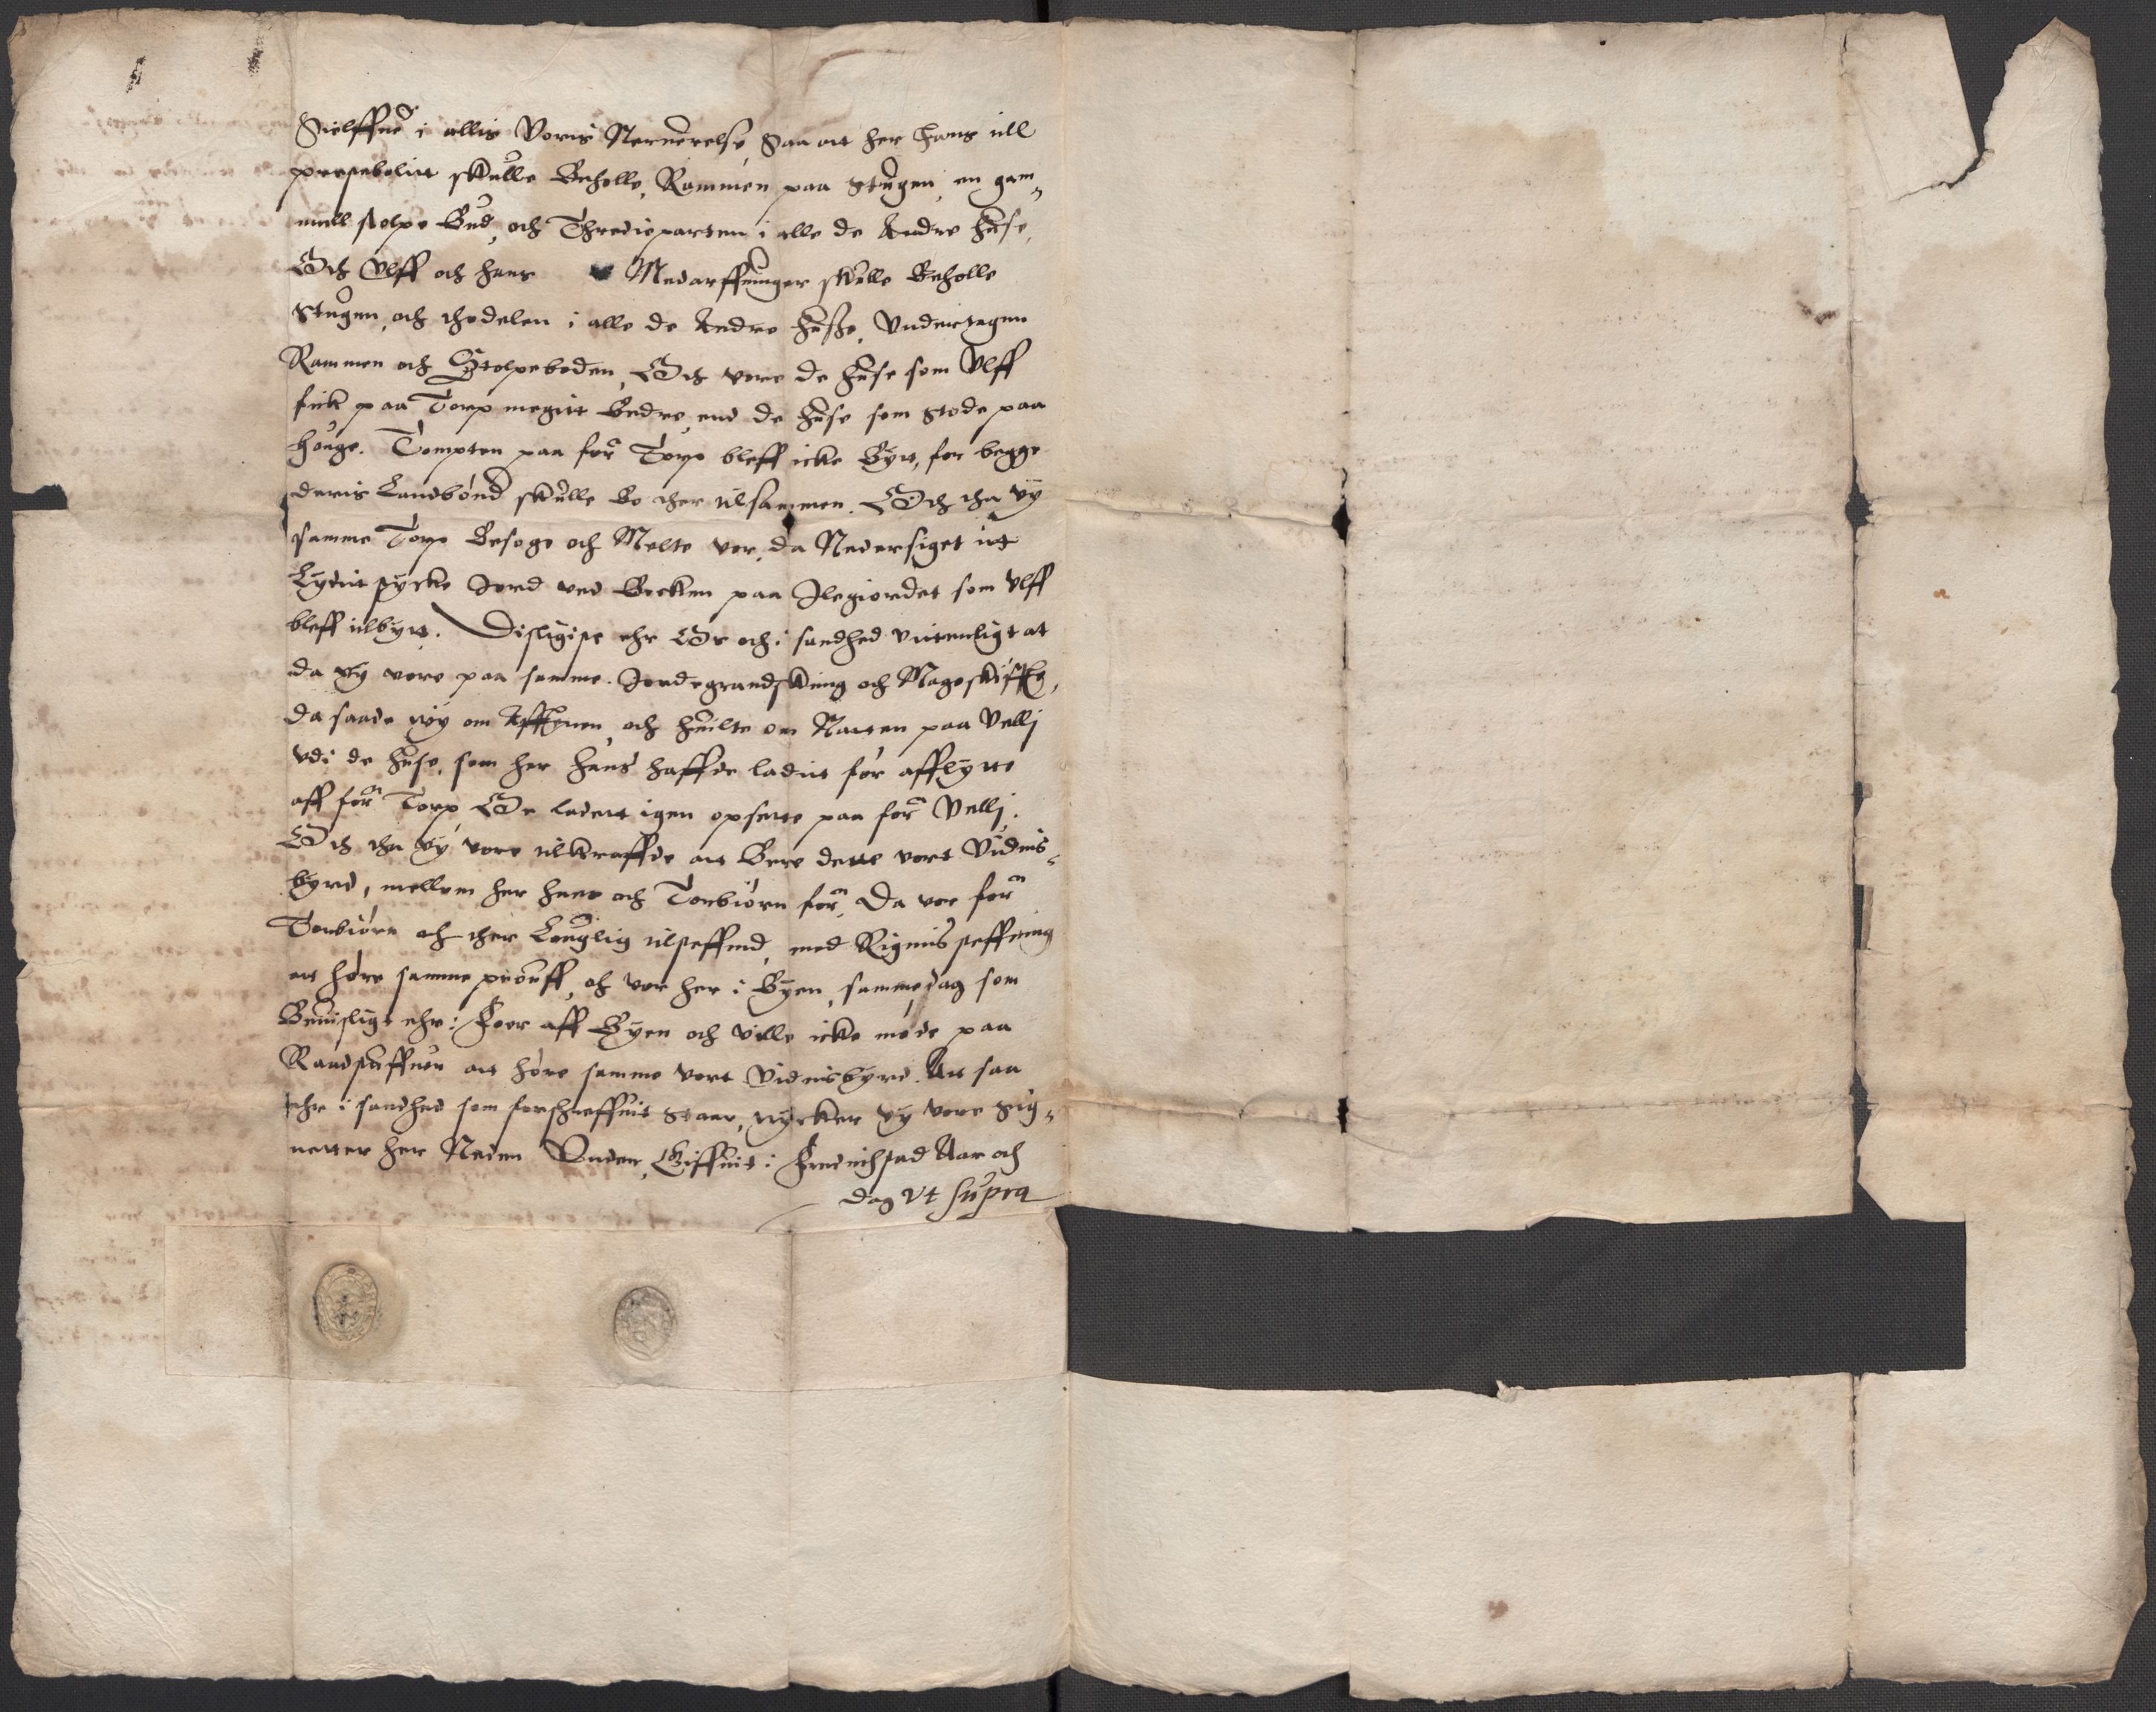 Sielffue i allis Voris Neruerelse Saa at her Hans till
prestebolitt skulle Beholle, Rammen paa Stugen, en gam¬
mell stolpe Bud, och Thredieparten i alle de Andre Huse,
Och Vlff och hans Medarffuinger skulle Beholle
Stugen, och thodelen i alle de Andre Husße, Vndertagen
Rammen och Stolpeboden, Och vore de Huse som Vlff
fick paa Torp megitt Bedre, end de Huse som Stode paa
Houge. Tompten paa forn Torp bleff icke Bytt, for begge
deris Landbönd skulle Bo ther tilsammen. Och tha vy
samme Torp Besoge och Melte vor, da Nedersiget itt
Lyditt stycke Jord ved Becken paa Ilegiordet som Vlff
bleff tilbytt. Disligiste ehr Oc och i sandhed vitterligt at
da vy vore paa samme Jordegrandskning och Mageskiffte,
da saade vy om Afftenen, och huilte om Natten paa Vellj
vdi de Huse, som her Hans haffde laditt för afflytte
aff forn Torp, Oc ladett igen opsette paa forn Vellj.
Och tha vy vore tilkraffde att Bere dette vort Vidnis¬
byrd, mellom her Hans och Torbiörn forn, Da vor forn
Torbiörn och ther Louglig tilsteffnd, med Rigens steffning
att höre samme prouff, och vor her i Byen, samme dag som
Beuisligt ehr: Foer aff Byen och ville icke möde paa
Raadstuffuen att höre samme vort Vidnisbyrd. Att saa
ehr i sandhed som forschreffuit Staar, trycker vy vore Sig¬
netter her Neden Vnder, Giffuit i Fredrichstad Aar och
dag Vt supra